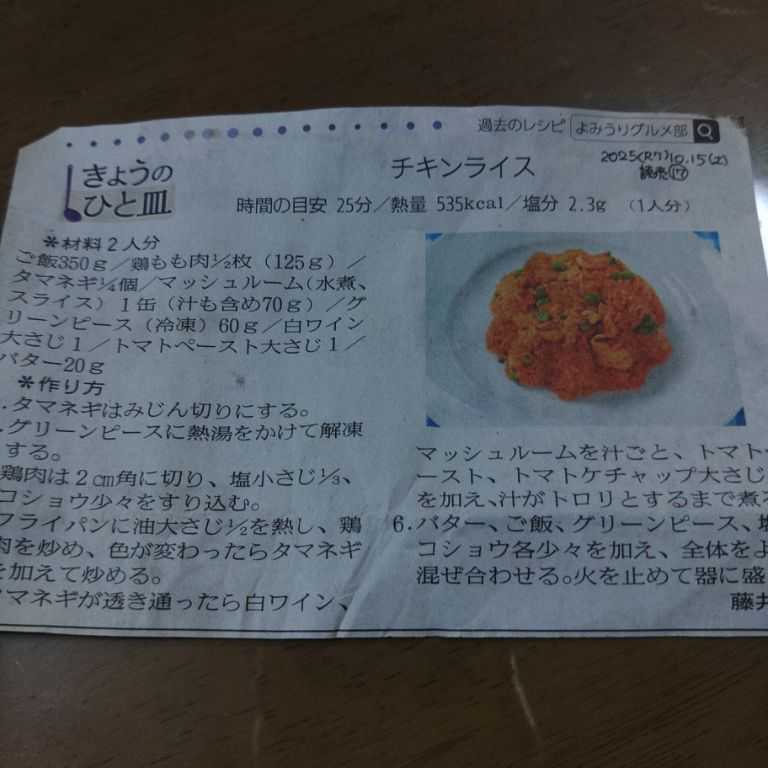 過去のレシピ よみうりグルメ部
きょうの
ひと皿
チキンライス
2025(R7)10.15(水)
読売⑰
時間の目安 25分/熱量 535kcal/塩分 2.3g (1人分)
*材料2人分
ご飯350g/鶏もも肉½枚(125g)/
タマネギ¼個/マッシュルーム(水煮、
スライス)1缶(汁も含め70g)/グ
リーンピース(冷凍)60g/白ワイン
大さじ1/トマトペースト大さじ1/
バター20g
*作り方
.タマネギはみじん切りにする。
.グリーンピースに熱湯をかけて解凍
する。
鶏肉は2cm角に切り、塩小さじ⅓、
コショウ少々をすり込む。
フライパンに油大さじ½を熱し、鶏
肉を炒め、色が変わったらタマネギ
を加えて炒める。
タマネギが透き通ったら白ワイン、
マッシュルームを汁ごと、トマト
ースト、トマトケチャップ大さじ
を加え、汁がトロリとするまで煮
6.バター、ご飯、グリーンピース、塩
コショウ各少々を加え、全体をよ
混ぜ合わせる。火を止めて器に盛
藤井